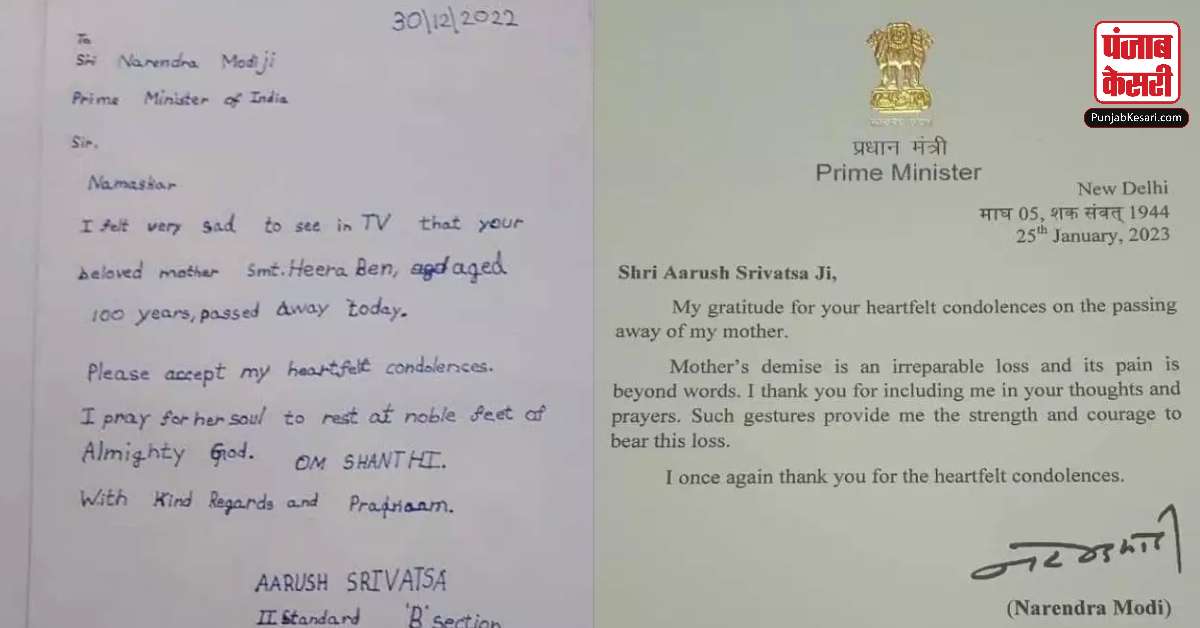 30/12/2022
To
Sri Narendra Modiji
Prime Minister of India
Sir.
Namaskar
I felt very sad to see in TV that your
beloved mother Smt. Heera Ben, aged
100 years, passed away today.
Please accept my heartfelt condolences.
I pray for her soul to rest at noble feet of
Almighty God. OM SHANTHI.
With Kind Regards and
AARUSH SRIVATSA
II Standard 'B' section
प्रधान मंत्री
Prime Minister
New Delhi
माघ 05, शक संवत् 1944
25th January, 2023
Shri Aarush Srivatsa Ji,
My gratitude for your heartfelt condolences on the passing
away of my mother.
Mother's demise is an irreparable loss and its pain is
beyond words. I thank you for including me in your thoughts and
prayers. Such gestures provide me the strength and courage to
bear this loss.
I once again thank you for the heartfelt condolences.
(Narendra Modi)
पंजाब
केसरी
PunjabKesari.com